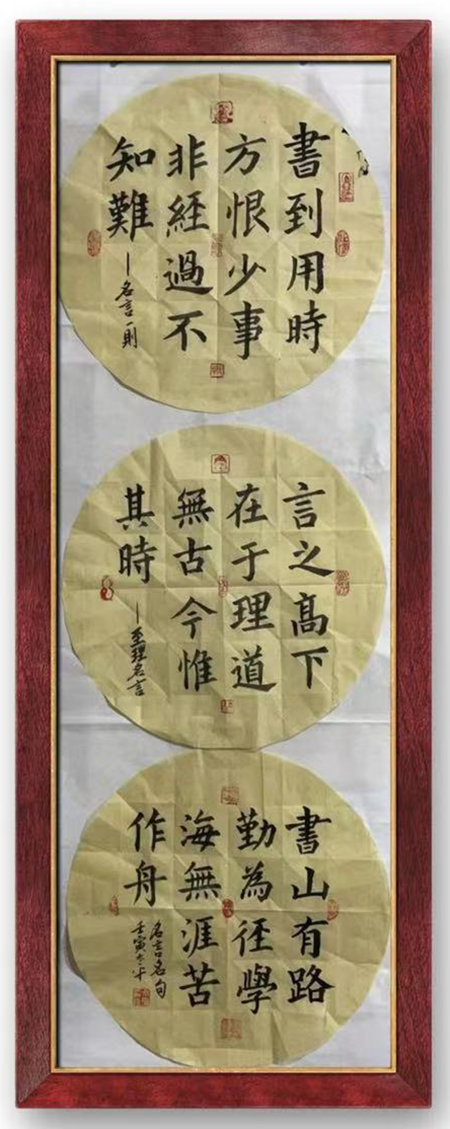 書到用時
方恨少事
非經過不
知難
名言一則
言之高下
在于理道
無古今惟
其時
至理名言
書山有路
勤為徑學
海無涯苦
作舟
名言名句
壬寅